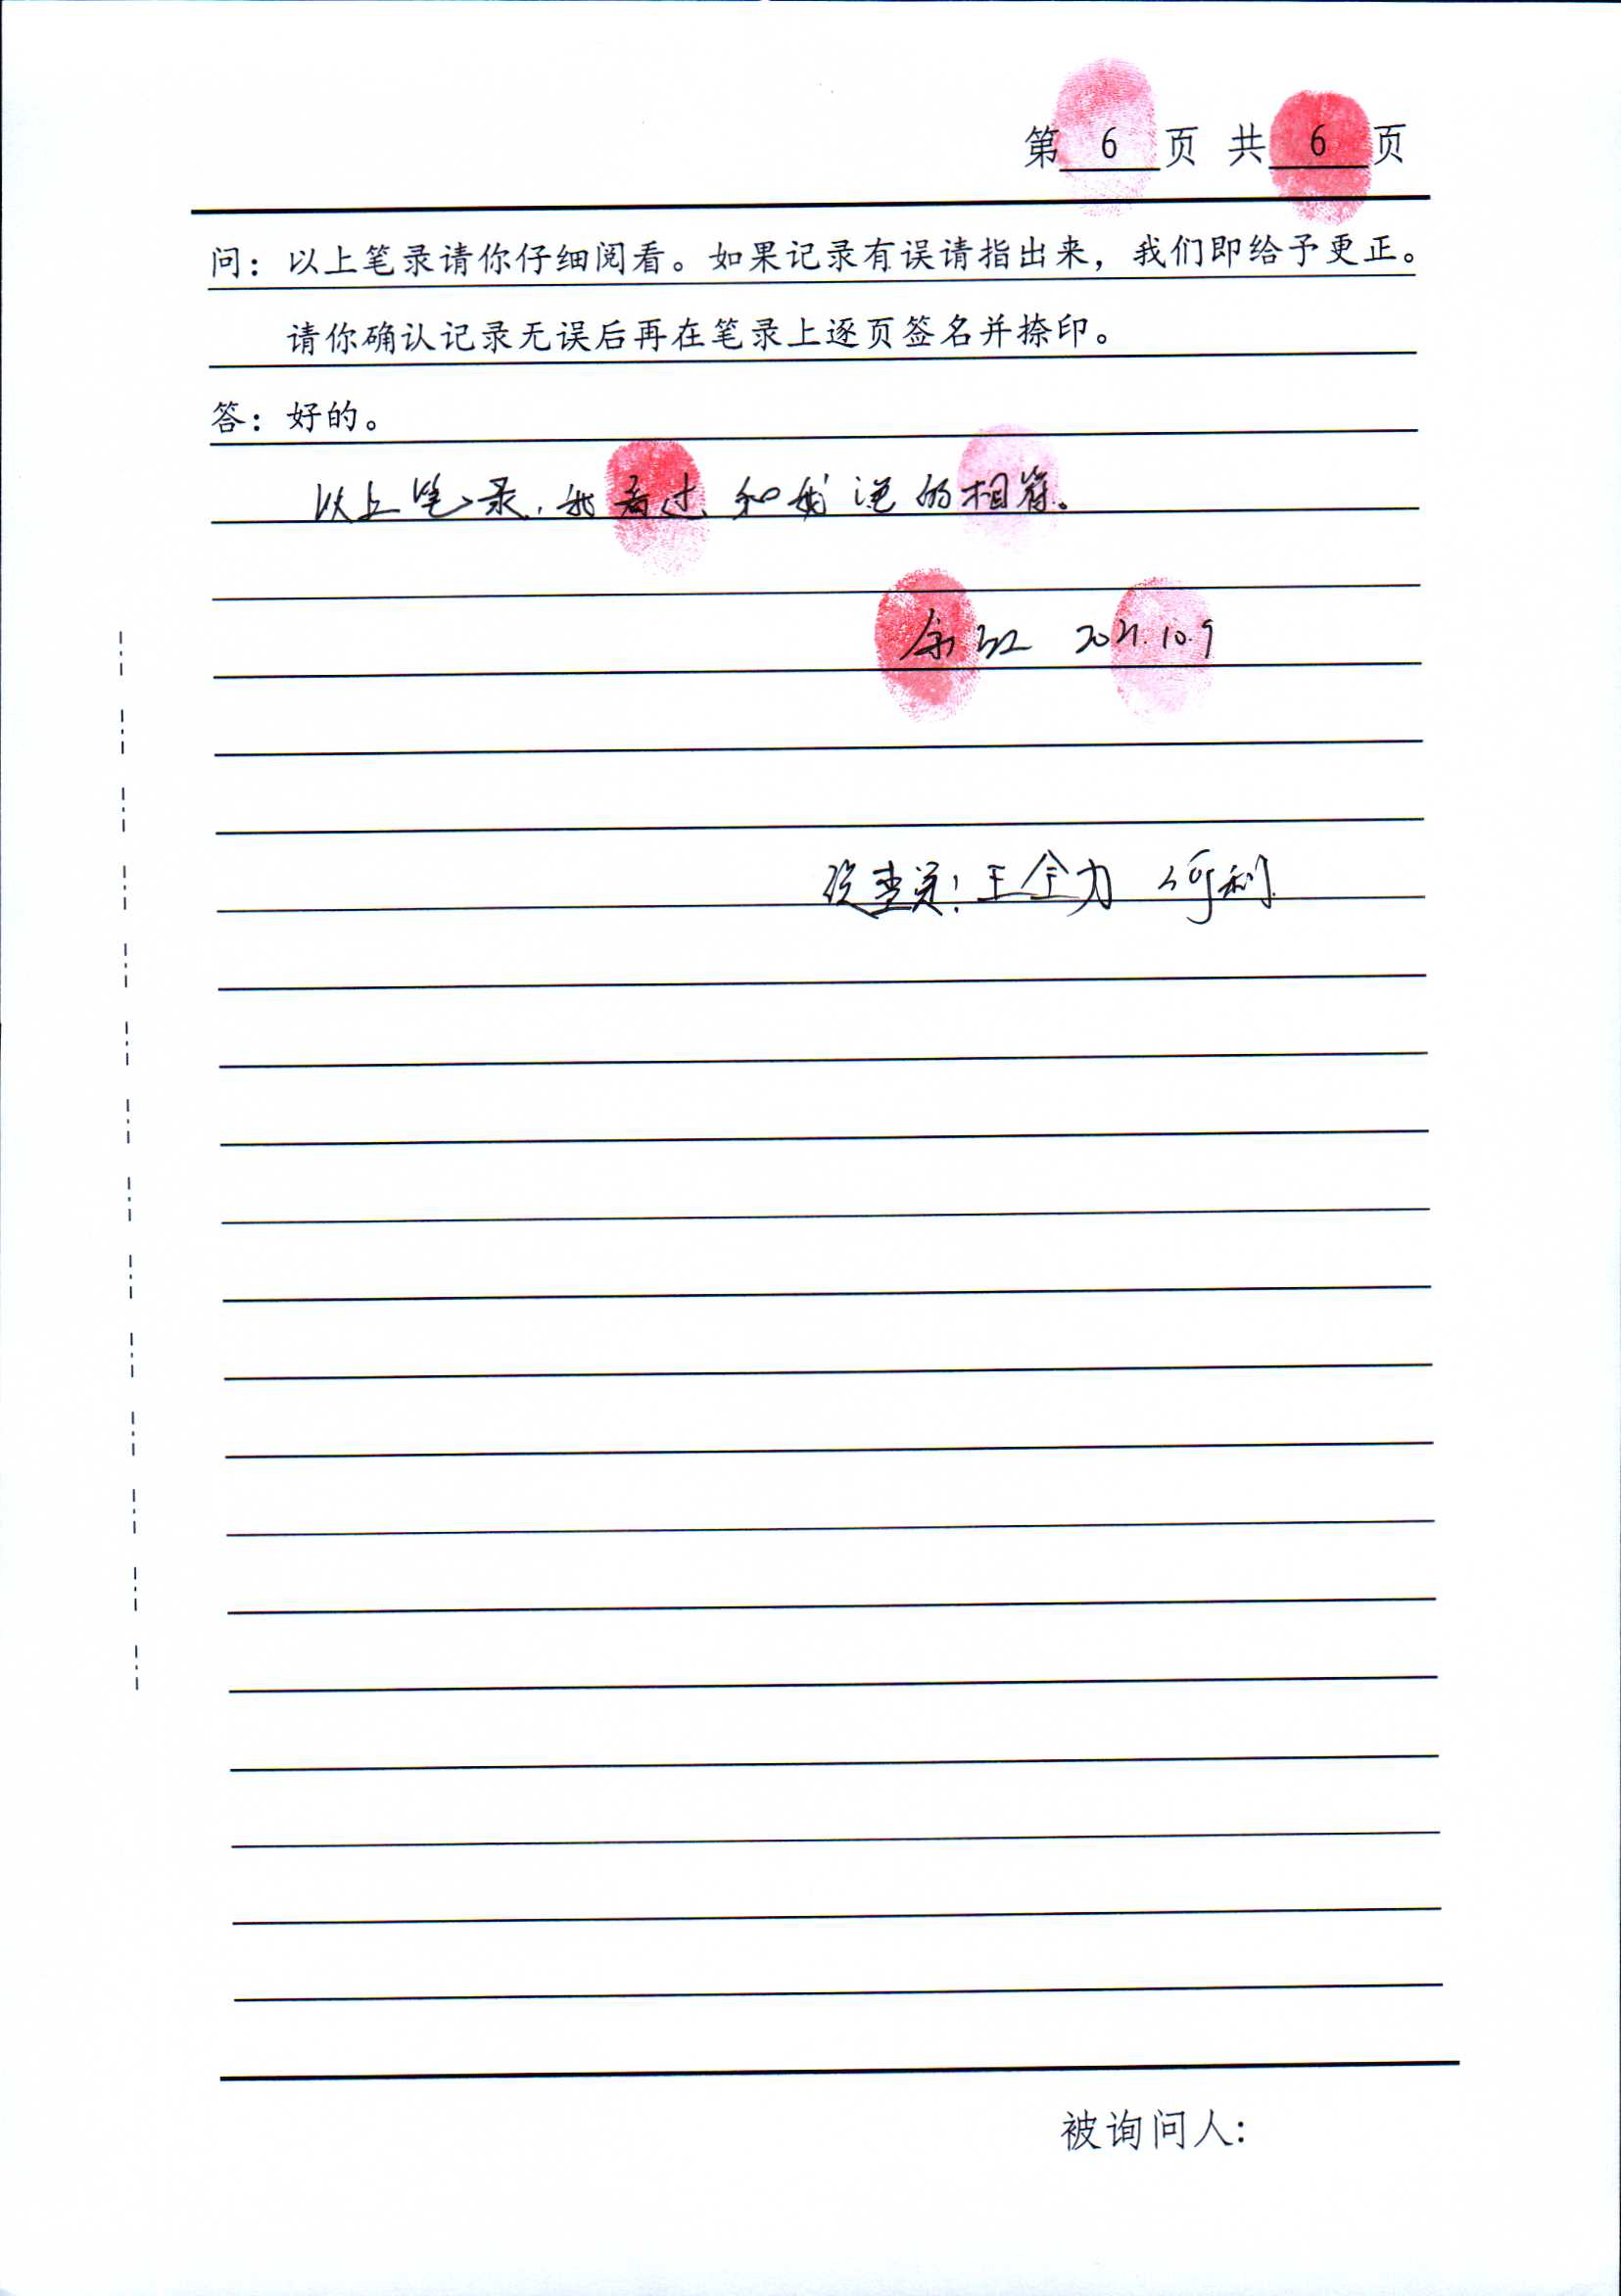 第 6 页 共 6 页
问：以上笔录请你仔细阅看。如果记录有误请指出来，我们即给予更正。
请你确认记录无误后再在笔录上逐页签名并捺印。
答：好的。
以上笔录，我看过，和我说的相符。
余 2021.10.9
侦查员：王全力 何利
被询问人：